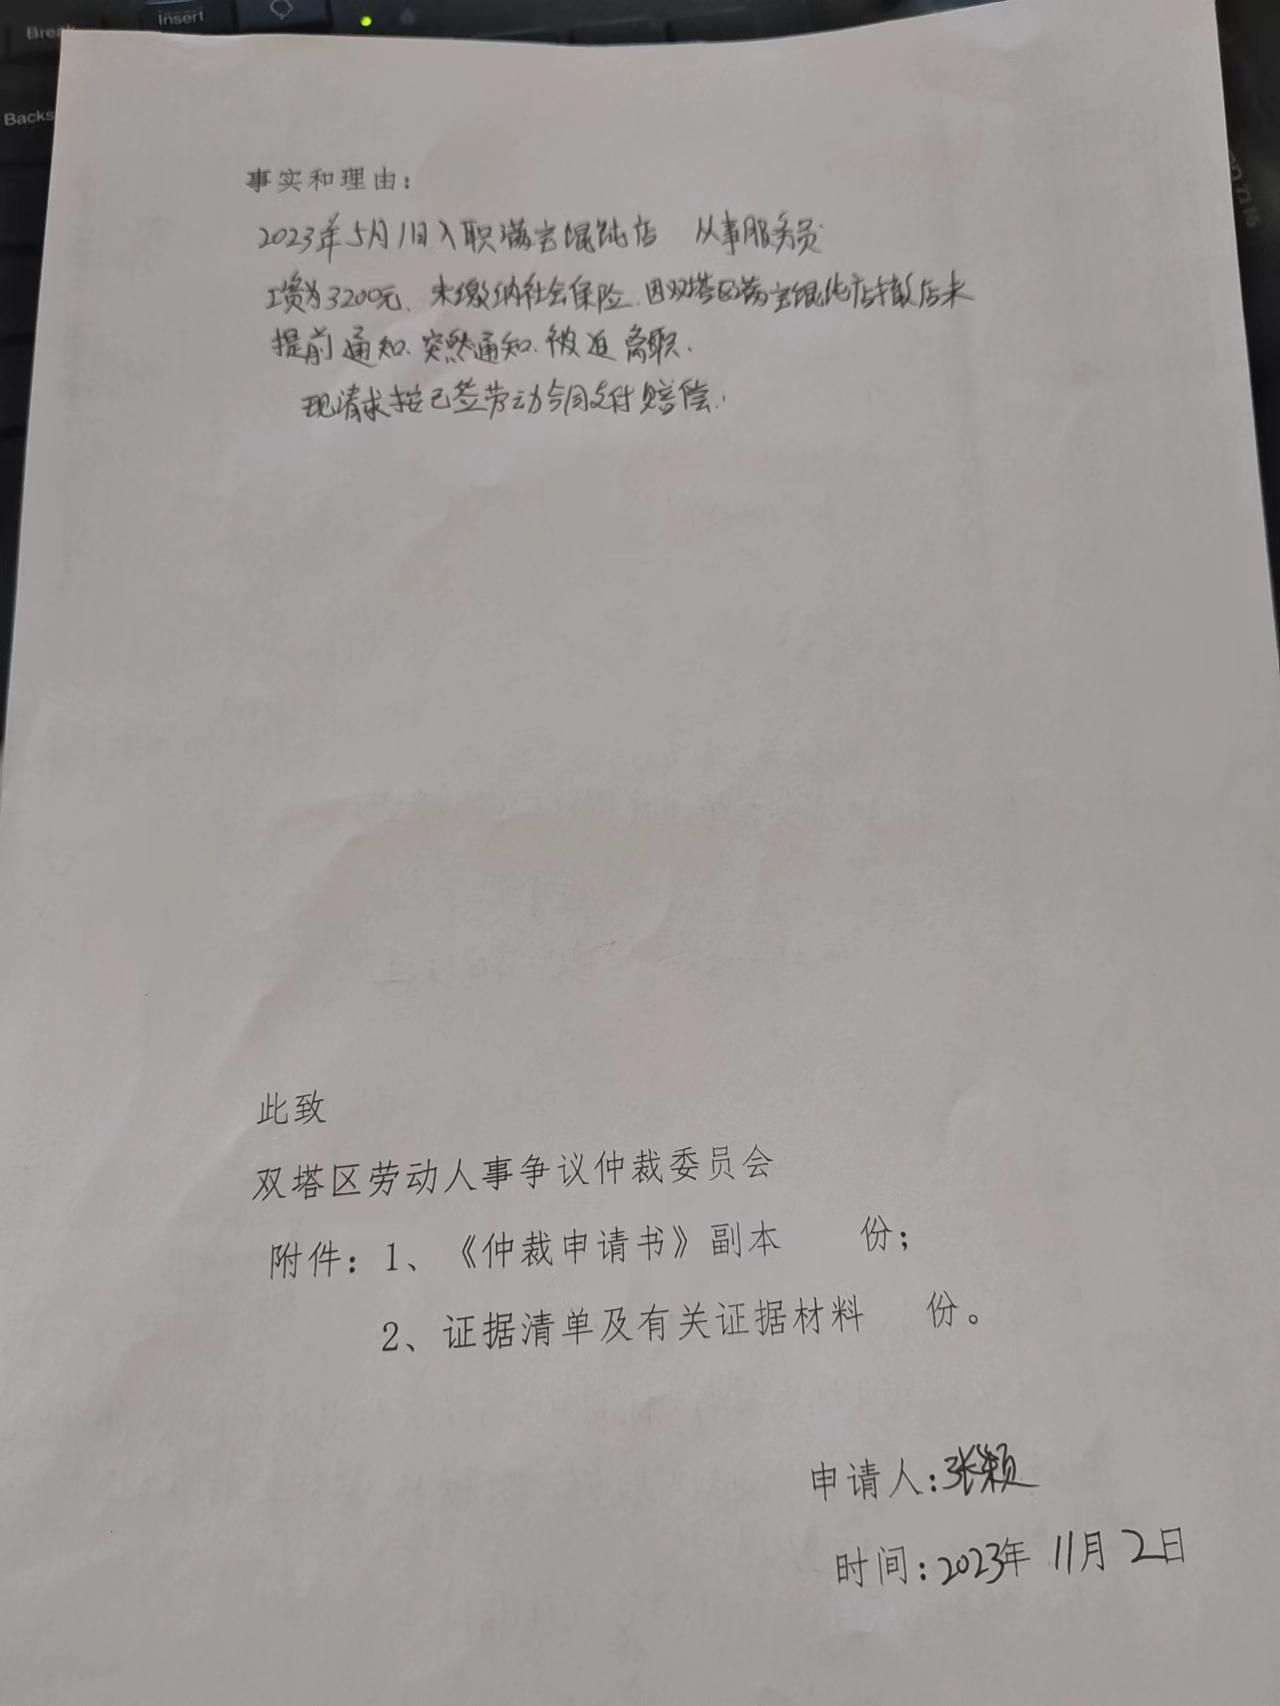 Insert
Backs
事实和理由：
2023年5月1日入职满宝馄饨店 从事服务员
工资为3200元、未缴纳社会保险、因双塔区满宝馄饨店撤店未
提前通知、突然通知、被迫离职、
现请求按已签劳动合同支付赔偿.
此致
双塔区劳动人事争议仲裁委员会
附件：1、《仲裁申请书》副本 份；
2、证据清单及有关证据材料 份。
申请人：张颖
时间：2023年 11月 2日